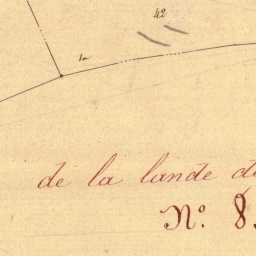 42
de la lande
N.º 8